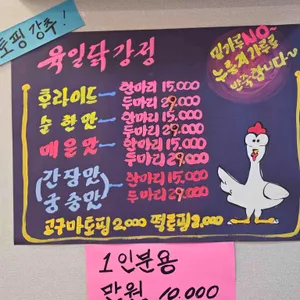 토핑 강추!
육일닭강정
밀가루NO~
누룽지가루로
반죽합니다~
후라이드 한마리 15,000
두마리 29,000
순한맛 한마리 15,000
두마리 29,000
매운맛 한마리 15,000
두마리 29,000
(간장맛 한마리 15,000
궁중맛) 두마리 29,000
고구마토핑 2,000 떡토핑 2,000
1인분용
만원 10,000